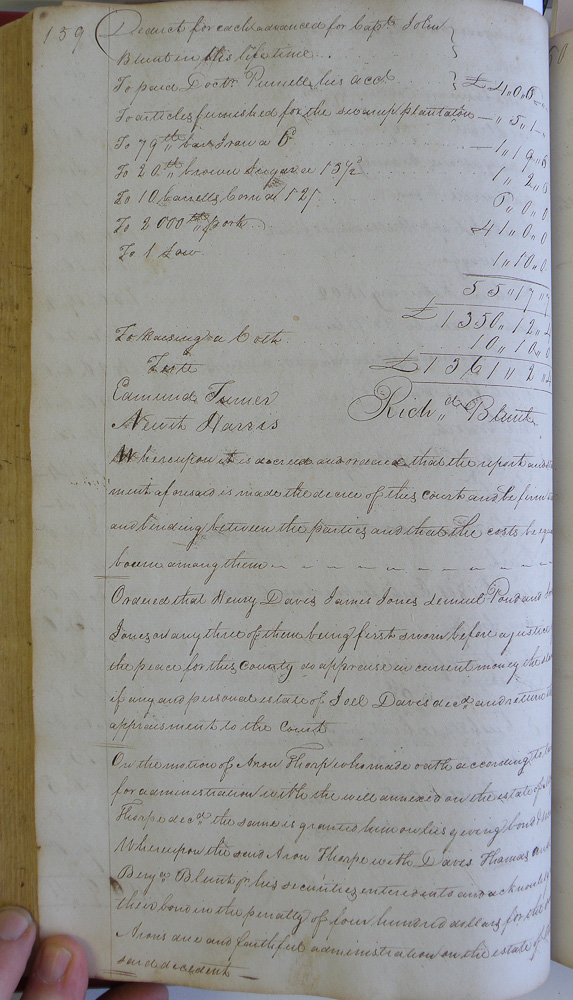 159
Deduct for cash advanced for Capt. John
Blunt in his life time
To paid Doctr. Purnell his acct £4,,0,,6
To articles furnished for the swamp plantation — ,, 5,,1
To 79 lb bar Iron a 6d — 1,,19,,6
To 20 lb brown Sugar a 13½ 1,, 2,,6
To 10 barrells Corn a 12/ 6,,0,,0
To 2000 lb pork 41,,0,,0
To 1 Saw 1,,10,,0
55,,17,,7
£1350,,12,,
To Raising a Colt 10,,10,,0
Teste £1361,,2,,
Edmund Turner Richd. Blunt
Newit Harris
Whereupon it is decreed and ordered that the report and
ment aforesaid is made the decree of this court and be firm
and binding between the parties and that the costs be
borne among them
Ordered that Henry Davis James Jones Lemuel Pond and
Jones or any three of them being first sworn before a justice
the peace for this County do appraise in current money the
if any and personal estate of Joel Davis decd. and return
appraisment to the Court
On the motion of Aron Thorp who made oath according to
for administration with the will annexed on the estate of
Thorpe decd. the same is granted him on his giving bond &
Whereupon the said Aron Thorpe with Davis Thomas and
Benjn. Blunt jr. his securities entered into and acknowledged
their bond in the penalty of four hundred dollars for the
Arons due and faithful administration on the estate of
said decedent